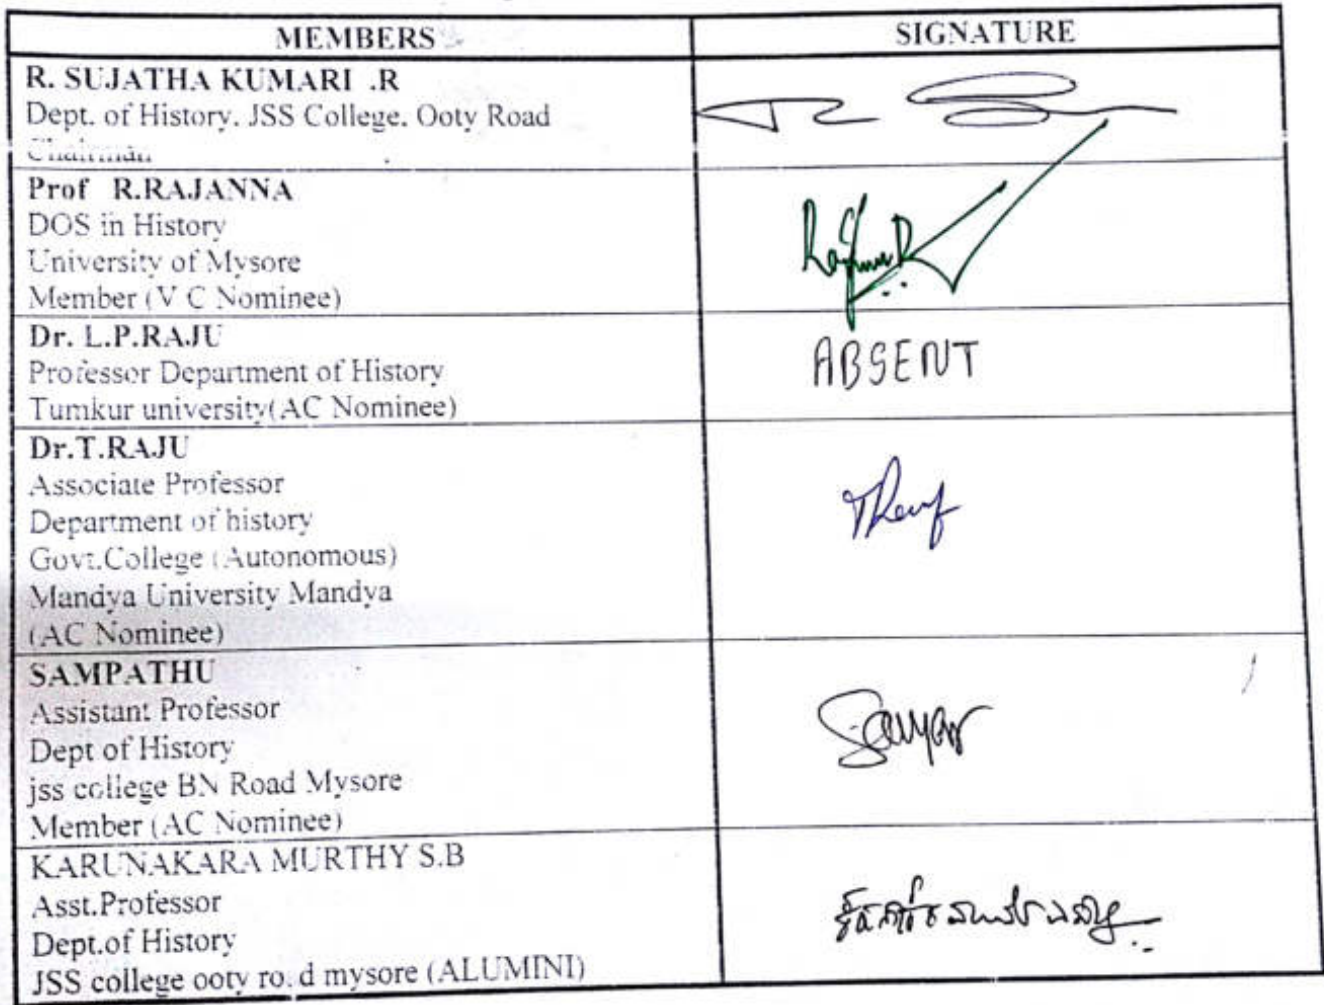 MEMBERS SIGNATURE
R. SUJATHA KUMARI .R
Dept. of History. JSS College. Ooty Road
Chairman
Prof R.RAJANNA
DOS in History
University of Mysore
Member (V C Nominee)
Dr. L.P.RAJU
Professor Department of History
Tumkur university(AC Nominee)
ABSENT
Dr.T.RAJU
Associate Professor
Department of history
Govt.College (Autonomous)
Mandya University Mandya
(AC Nominee)
SAMPATHU
Assistant Professor
Dept of History
jss college BN Road Mysore
Member (AC Nominee)
KARUNAKARA MURTHY S.B
Asst.Professor
Dept.of History
JSS college ooty ro d mysore (ALUMINI)